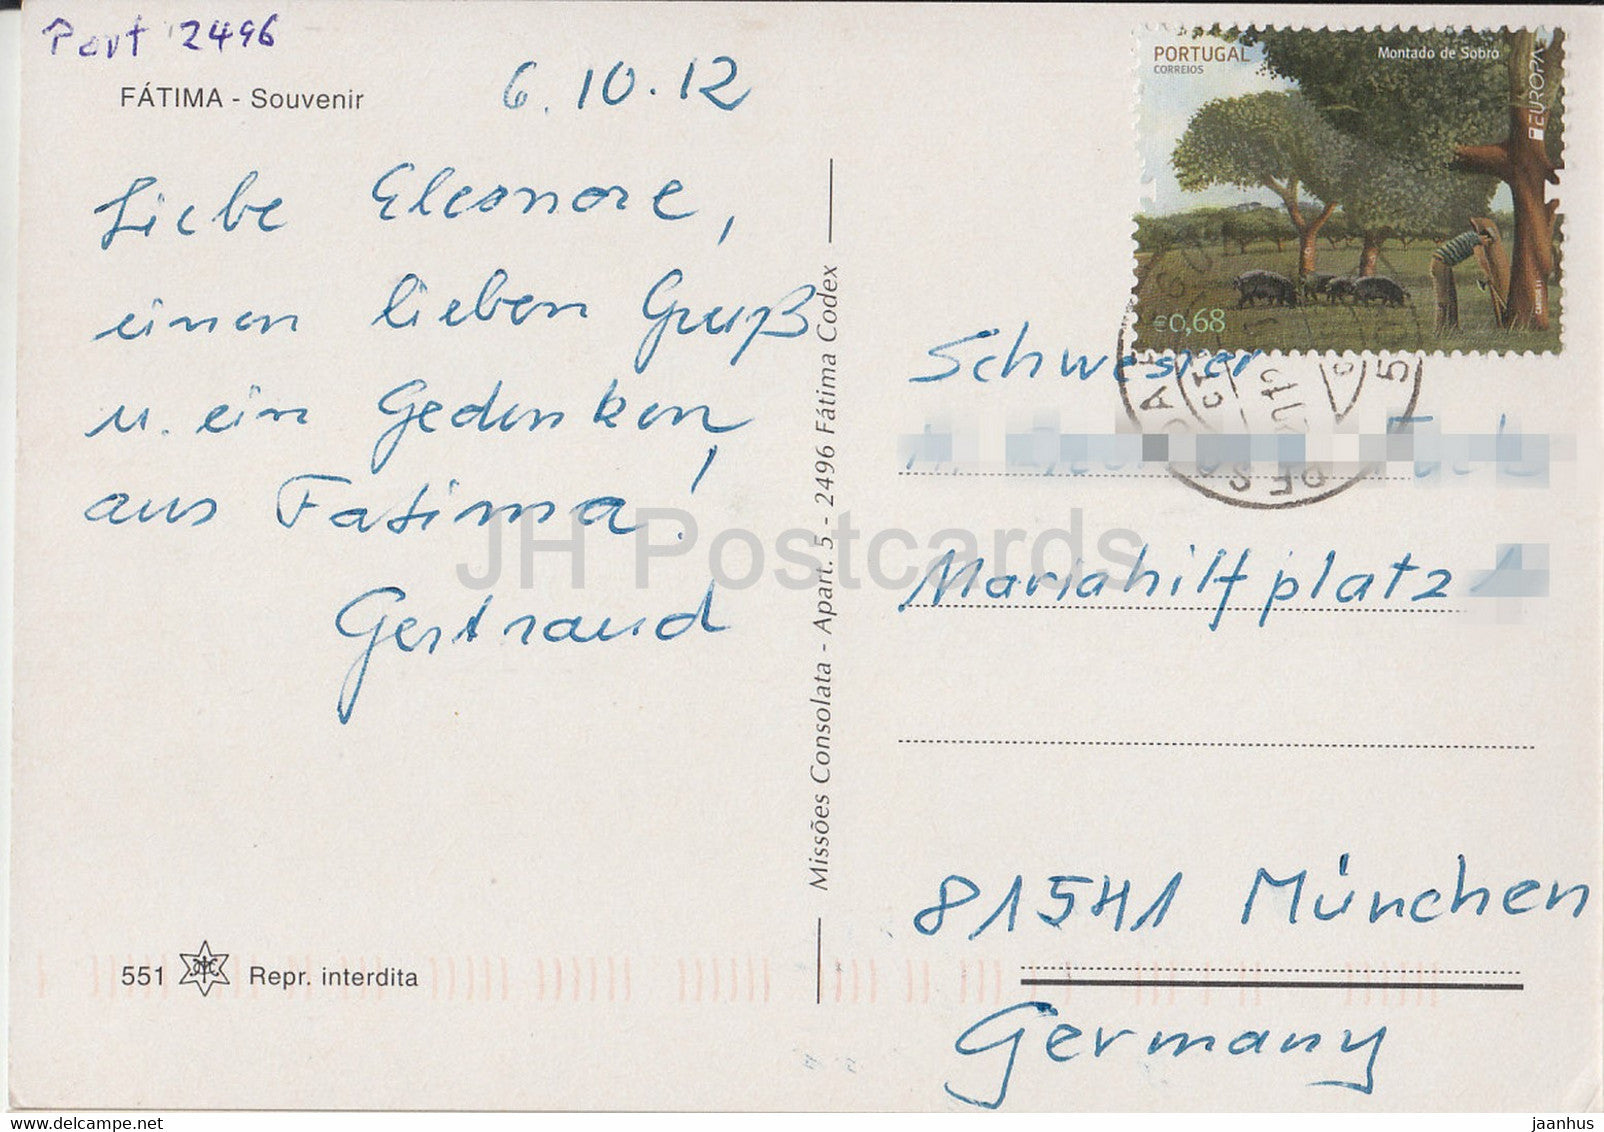 Port 2496
FÁTIMA - Souvenir
6.10.12
Liebe Eleonore,
einen lieben Gruß
u. ein Gedenken,
aus Fatima!
Gertraud
551 Repr. interdita
Missões Consolata - Apart. 5 - 2496 Fátima Codex
PORTUGAL
CORREIOS
Montado de Sobro
EUROPA
€0,68
Schwester
Mariahilfplatz
81541 München
Germany
JH Postcards
delcampe.net
jaanhus